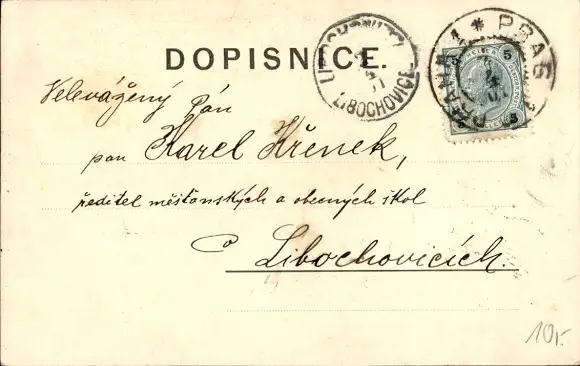 DOPISNICE.
LIBOCHOVICE
PRAG
PRAHA 1
5
5
Velevážený Pán
pan Karel Křenek,
ředitel měšťanských a obecných škol
v Libochovicích.
10,-